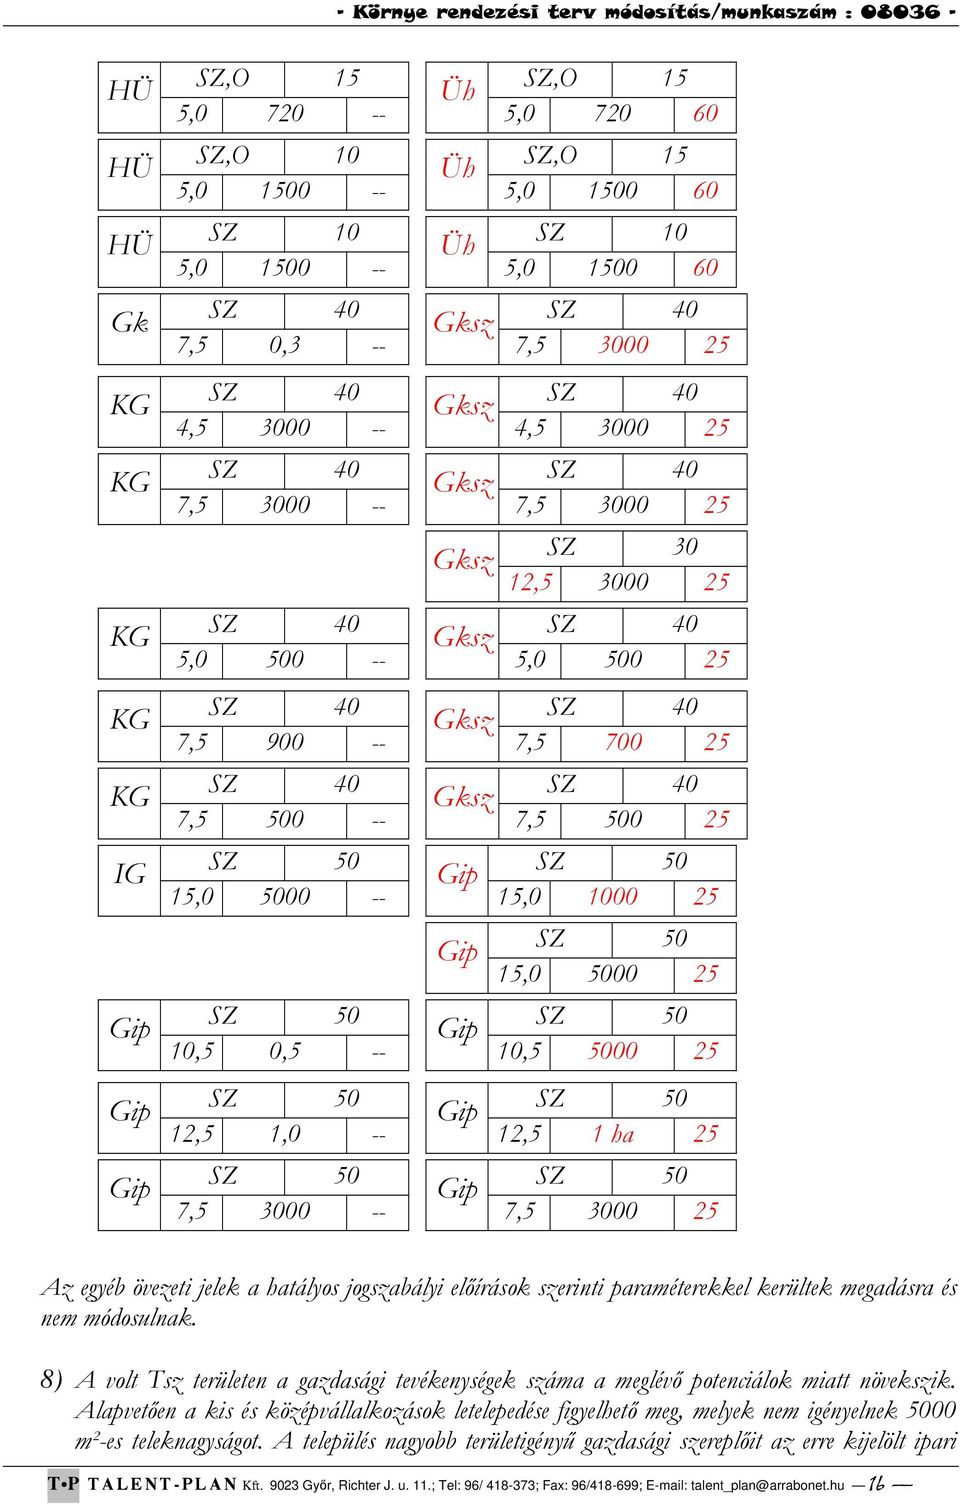 - Környe rendezési terv módosítás/munkaszám : 08036 -
HÜ SZ,O 15 Üh SZ,O 15
5,0 720 -- 5,0 720 60
HÜ SZ,O 10 Üh SZ,O 15
5,0 1500 -- 5,0 1500 60
HÜ SZ 10 Üh SZ 10
5,0 1500 -- 5,0 1500 60
Gk SZ 40 Gksz SZ 40
7,5 0,3 -- 7,5 3000 25
KG SZ 40 Gksz SZ 40
4,5 3000 -- 4,5 3000 25
KG SZ 40 Gksz SZ 40
7,5 3000 -- 7,5 3000 25
Gksz SZ 30
12,5 3000 25
KG SZ 40 Gksz SZ 40
5,0 500 -- 5,0 500 25
KG SZ 40 Gksz SZ 40
7,5 900 -- 7,5 700 25
KG SZ 40 Gksz SZ 40
7,5 500 -- 7,5 500 25
IG SZ 50 Gip SZ 50
15,0 5000 -- 15,0 1000 25
Gip SZ 50
15,0 5000 25
Gip SZ 50 Gip SZ 50
10,5 0,5 -- 10,5 5000 25
Gip SZ 50 Gip SZ 50
12,5 1,0 -- 12,5 1 ha 25
Gip SZ 50 Gip SZ 50
7,5 3000 -- 7,5 3000 25
Az egyéb övezeti jelek a hatályos jogszabályi előírások szerinti paraméterekkel kerültek megadásra és
nem módosulnak.
8) A volt Tsz területen a gazdasági tevékenységek száma a meglévő potenciálok miatt növekszik.
Alapvetően a kis és középvállalkozások letelepedése figyelhető meg, melyek nem igényelnek 5000
m²-es teleknagyságot. A település nagyobb területigényű gazdasági szereplőit az erre kijelölt ipari
T•P TALENT-PLAN Kft. 9023 Győr, Richter J. u. 11.; Tel: 96/ 418-373; Fax: 96/418-699; E-mail: talent_plan@arrabonet.hu —16 —